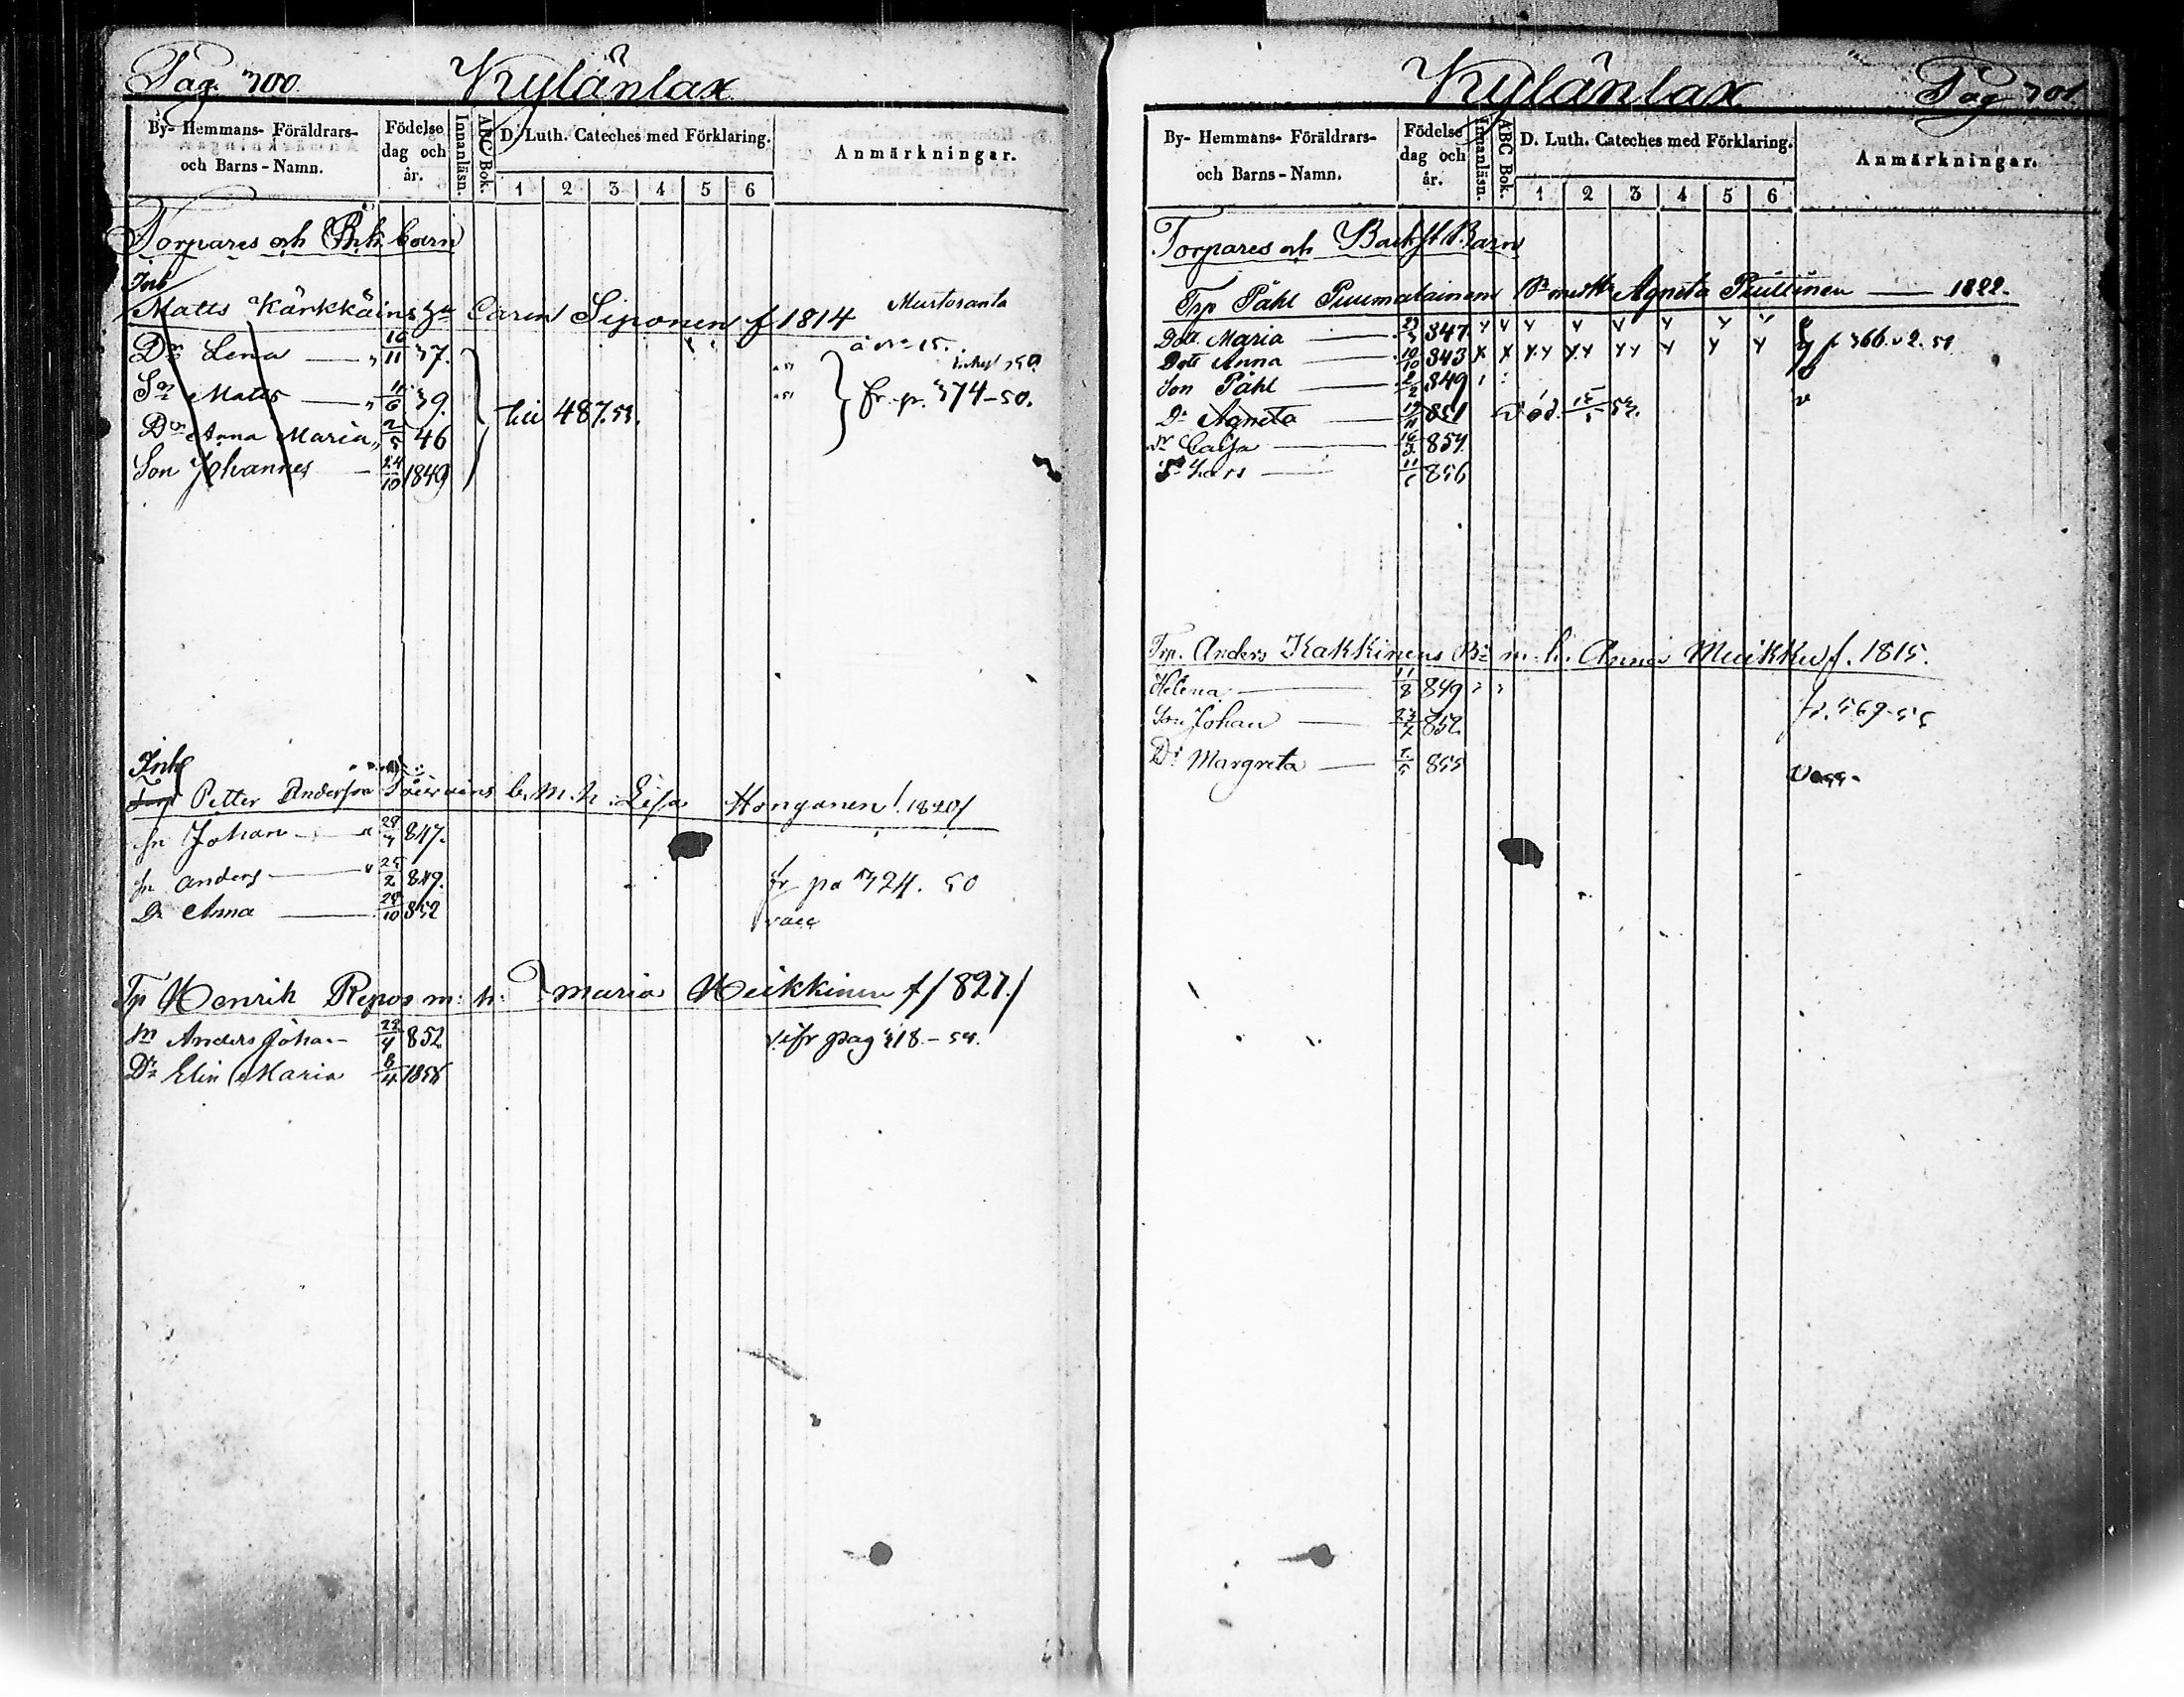 Pag. 700.
Kylänlax
By- Hemmans- Föräldrars- och Barns-Namn.
Födelse dag och år.
Innanläsn.
ABC Bok.
D. Luth. Cateches med Förklaring.
1 2 3 4 5 6
Anmärkningar.
Torpares och Bh. barn
Inh
Matts Kärkkäins Caren Siponen f 1814 Murtosanta
Dr Lena — " 16/11 37.
Sn Matts — " 39. fr. p. 374-50.
till 487.53.
Dr Anna Maria " 2/5 46
Son Johannes — 24/10 1849
Inh
Petter Andersson b. m. h. Lisa Honganen 1820/
Sn Johan — " 28/7 847.
Sn Anders — " 25/2 849. fr pa 324. 50
Dr Anna — 28/10 852 vacc
Tp Henrik Repos m: h: Maria Heikkinen f/827./
Sn Anders Johan 852 fr pag 318-54.
Dr Elin Maria 8/4 1855
Kylänlax
Pag 701.
By- Hemmans- Föräldrars- och Barns-Namn.
Födelse dag och år.
Innanläsn.
ABC Bok.
D. Luth. Cateches med Förklaring.
1 2 3 4 5 6
Anmärkningar.
Torpares och Backst. Barn
Trp Påhl Puumalainens Bn med H. Agneta Piullinen — 1822.
Dott. Maria — 847
Dott Anna — 10/10 843 p 366. 51
Son Påhl — 2/2 849
Dr Agneta — 851 död
Dr Caisa — 16/3 854.
Sn Lars — 856
Trp. Anders Kakkinens Bn m. h. Anna Muikku f. 1815.
Helena — 11/8 849
Son Johan — 852. fr. 569-55
Dr Margreta — 855
Vacc.